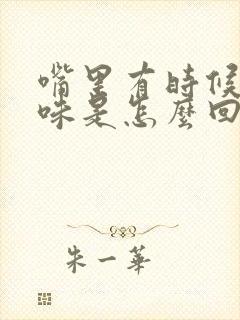 嘴里有時候
味是怎麼回
朱一華